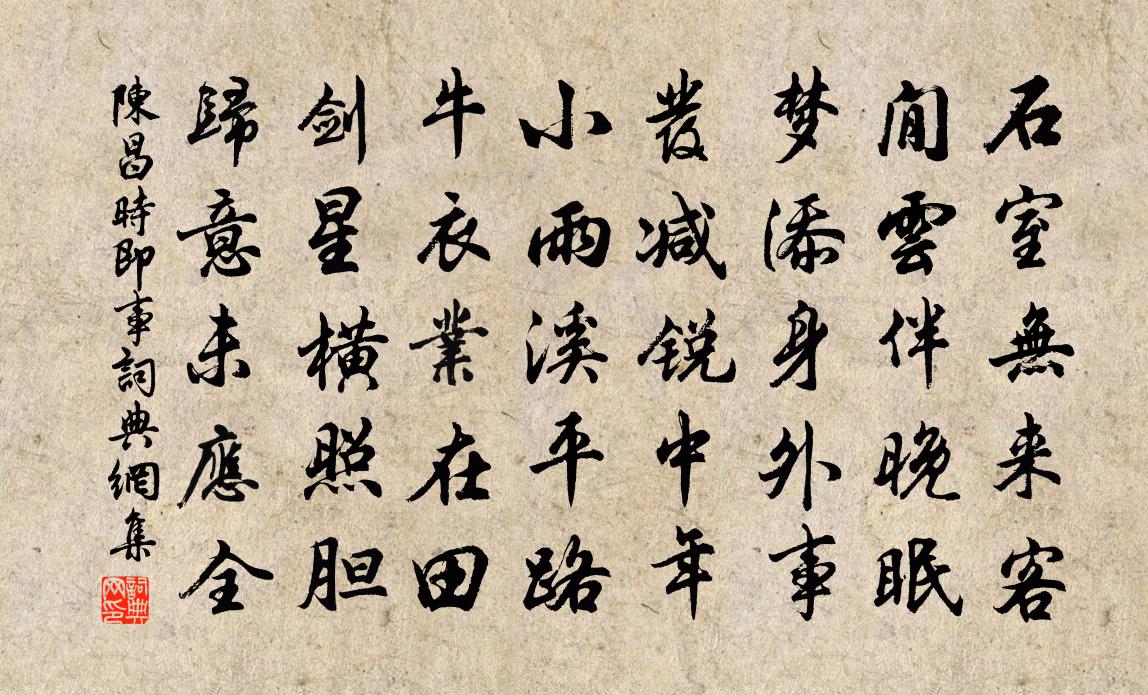 石室無来客
閒雲伴晚眠
梦添身外事
發减锐中年
小雨溪平路
牛衣業在田
剑星横照胆
歸意未應全
陳昌時即事詞典網集
詞典网印